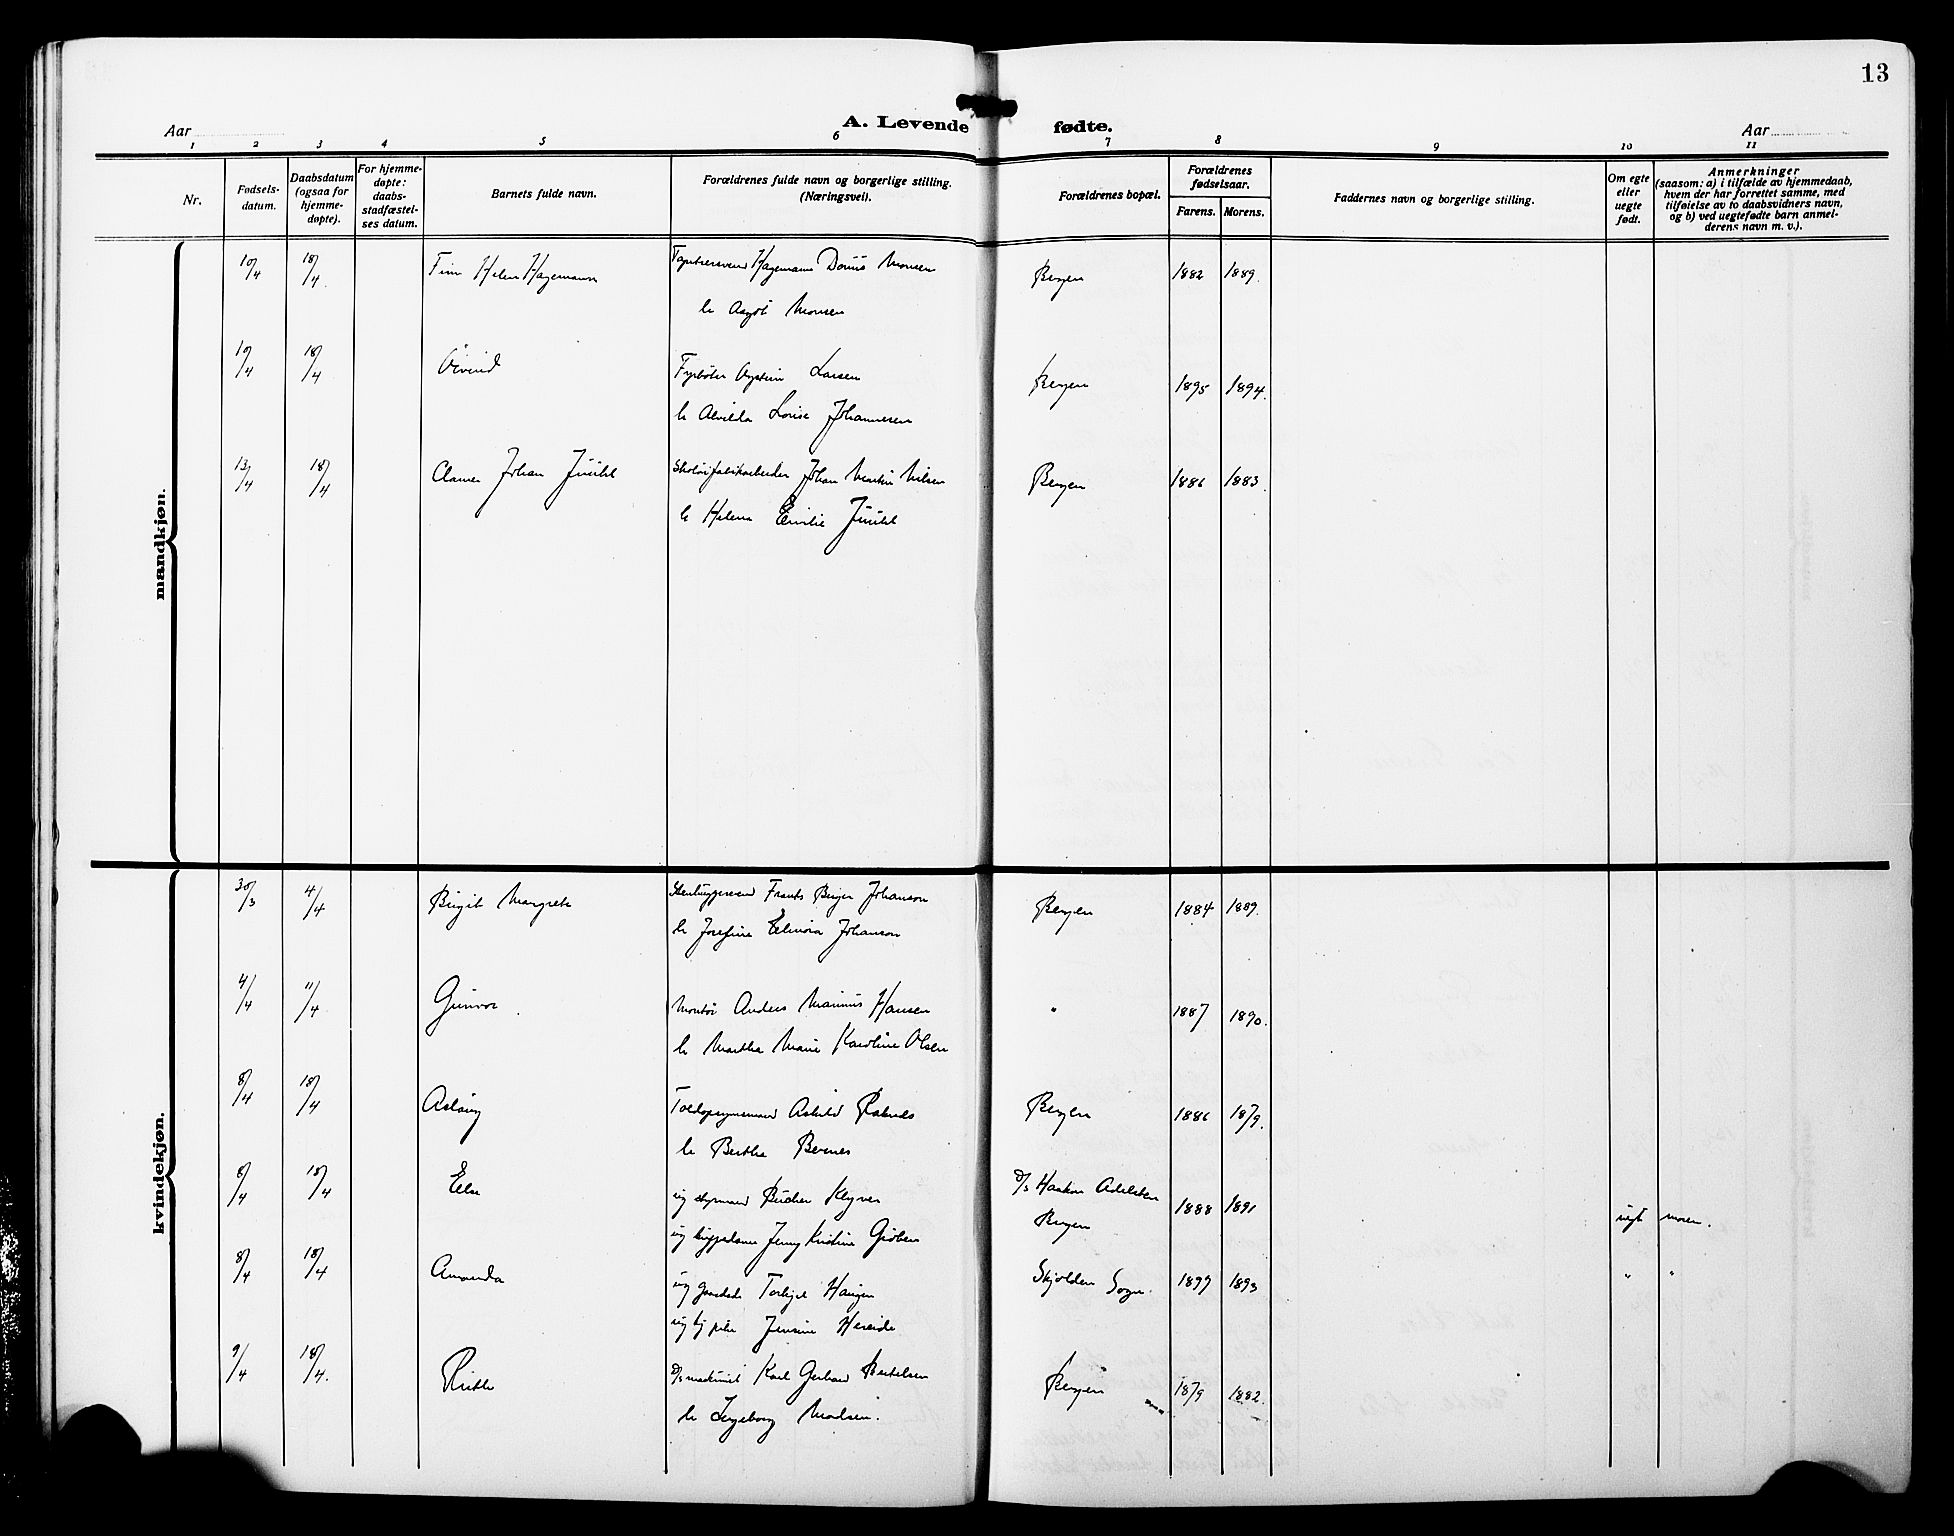 13
A. Levende fødte.
Aar
Aar
1 2 3 4 5 6 7 8 9 10 11
Nr.
Fødsels-
datum.
Daabsdatum
(ogsaa for
hjemme-
døpte).
For hjemme-
døpte:
daabs-
stadfæstel-
ses datum.
Barnets fulde navn.
Forældrenes fulde navn og borgerlige stilling.
(Næringsvei).
Forældrenes bopæl.
Forældrenes
fødselsaar.
Farens. Morens.
Faddernes navn og borgerlige stilling.
Om egte
eller
uegte
født.
Anmerkninger
(saasom: a) i tilfælde av hjemmedaab,
hvem der har forrettet samme, med
tilføielse av to daabsvidners navn,
og b) ved uegtefødte barn anmel-
derens navn m. v.).
mandkjøn.
10/4 18/4 Finn Helen Hagemann Hagemann Monsen Bergen 1882 1889.
h Aagot Monsen
10/4 18/4 Øivind Fyrbøter Øystein Larsen Bergen 1895 1894.
h Alvilda Lovise Johannesen
13/4 18/4 Johan Juuhl Skotøifabrikarbeider Johan Martin Nilsen Bergen 1886 1883.
h Helena Emilie Juuhl
kvindekjøn.
30/3 4/4 Birgit Margrete Frants Birger Johanson Bergen 1884 1889.
h Josefine Elinora Johanson
4/4 11/4 Gunvor Montør Anders Marinus Hansen " 1887 1890.
h Martha Marie Karoline Olsen
8/4 18/4 Aslaug Toldopsynsmand Askild Raknes Bergen 1886 1879.
h Berthe Bernes
8/4 18/4 Else ug styrmand Klyver D/s Haakon Adelsten 1888 1891
ug Jenny Kristine Bergen uegt moren.
8/4 18/4 Amanda ug Torkjel Haugen Skjolden Sogn. 1899 1893 " "
ug Jensine Hereide
9/4 18/4. Ruth D/s maskinist Karl Gerhard Bertelsen Bergen 1879 1882.
h Ingeborg Madsen.